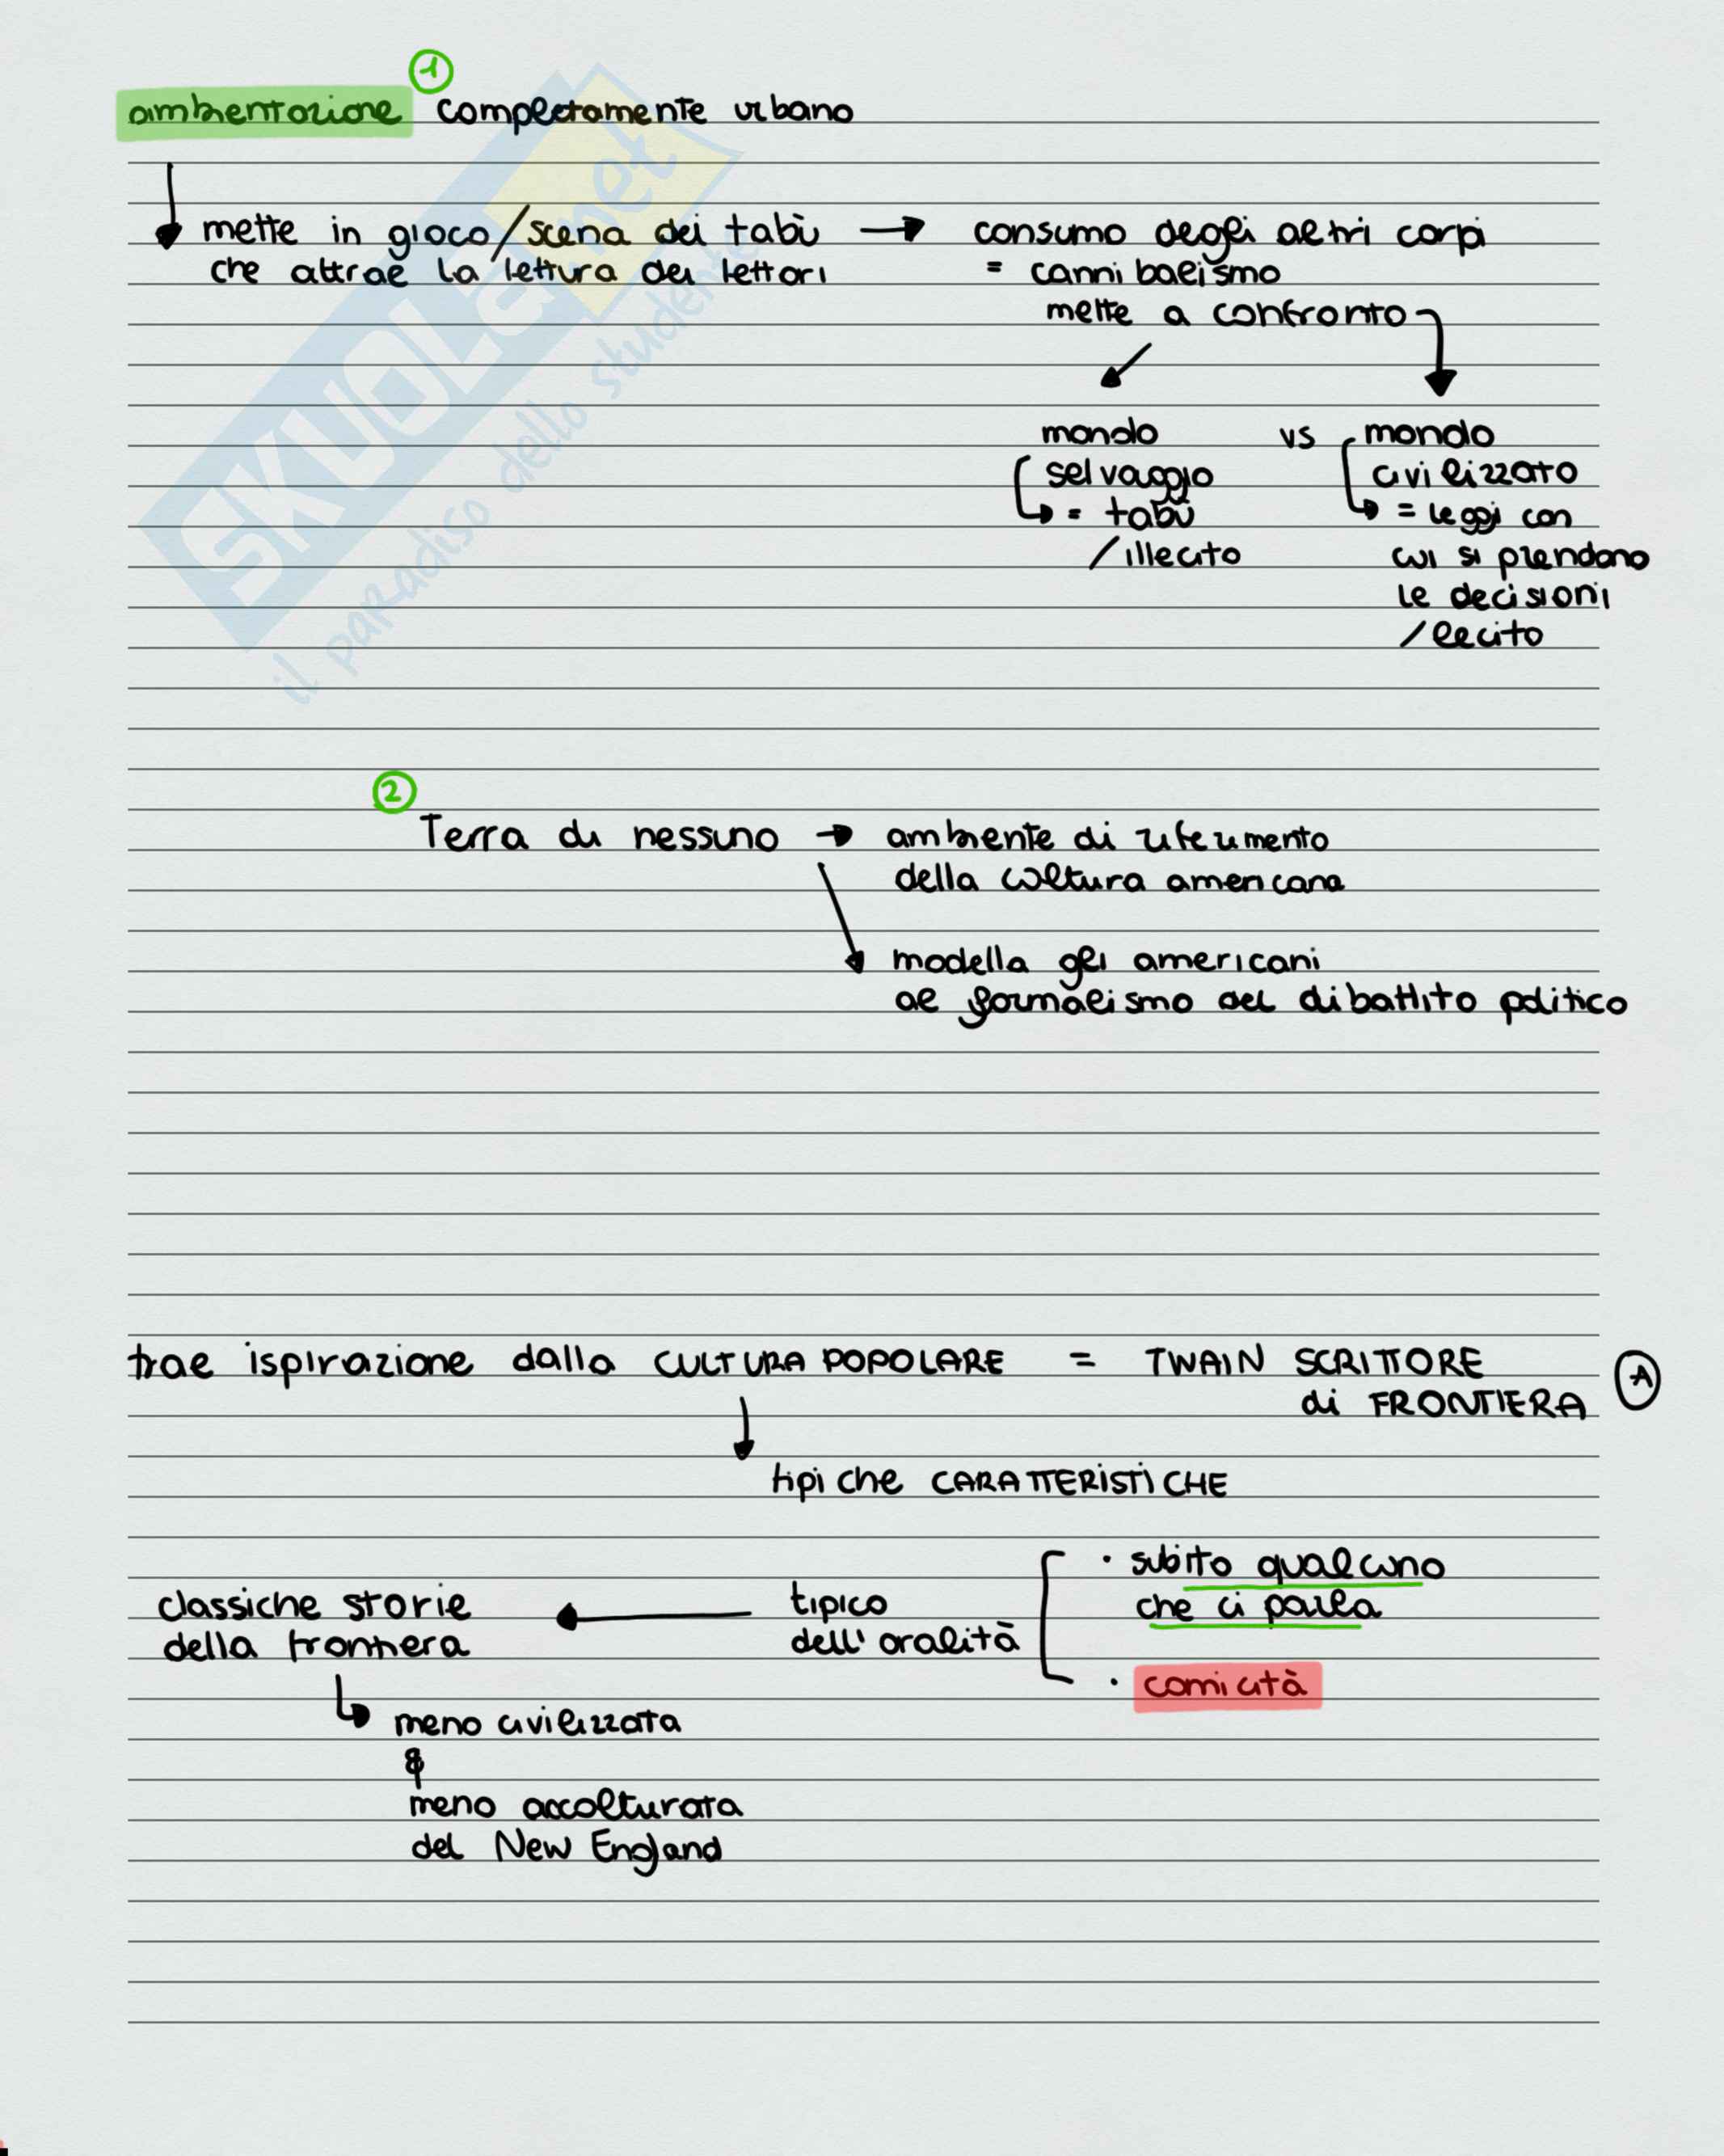 ①
ambientazione completamente urbano
mette in gioco/scena dei tabù → consumo degli altri corpi
che attrae la lettura dei lettori = cannibalismo
mette a confronto
mondo vs mondo
selvaggio civilizzato
= tabù = leggi con
/illecito cui si prendono
le decisioni
/lecito
②
Terra di nessuno → ambiente di riferimento
della coltura americana
modella gli americani
al formalismo del dibattito politico
trae ispirazione dalla CULTURA POPOLARE = TWAIN SCRITTORE
di FRONTIERA Ⓐ
tipiche CARATTERISTICHE
· subito qualcuno
che ci parla
classiche storie ← tipico
della frontiera dell'oralità
· comicità
meno civilizzata
&
meno accolturata
del New England
SKUOLA.net
il paradiso dello studente